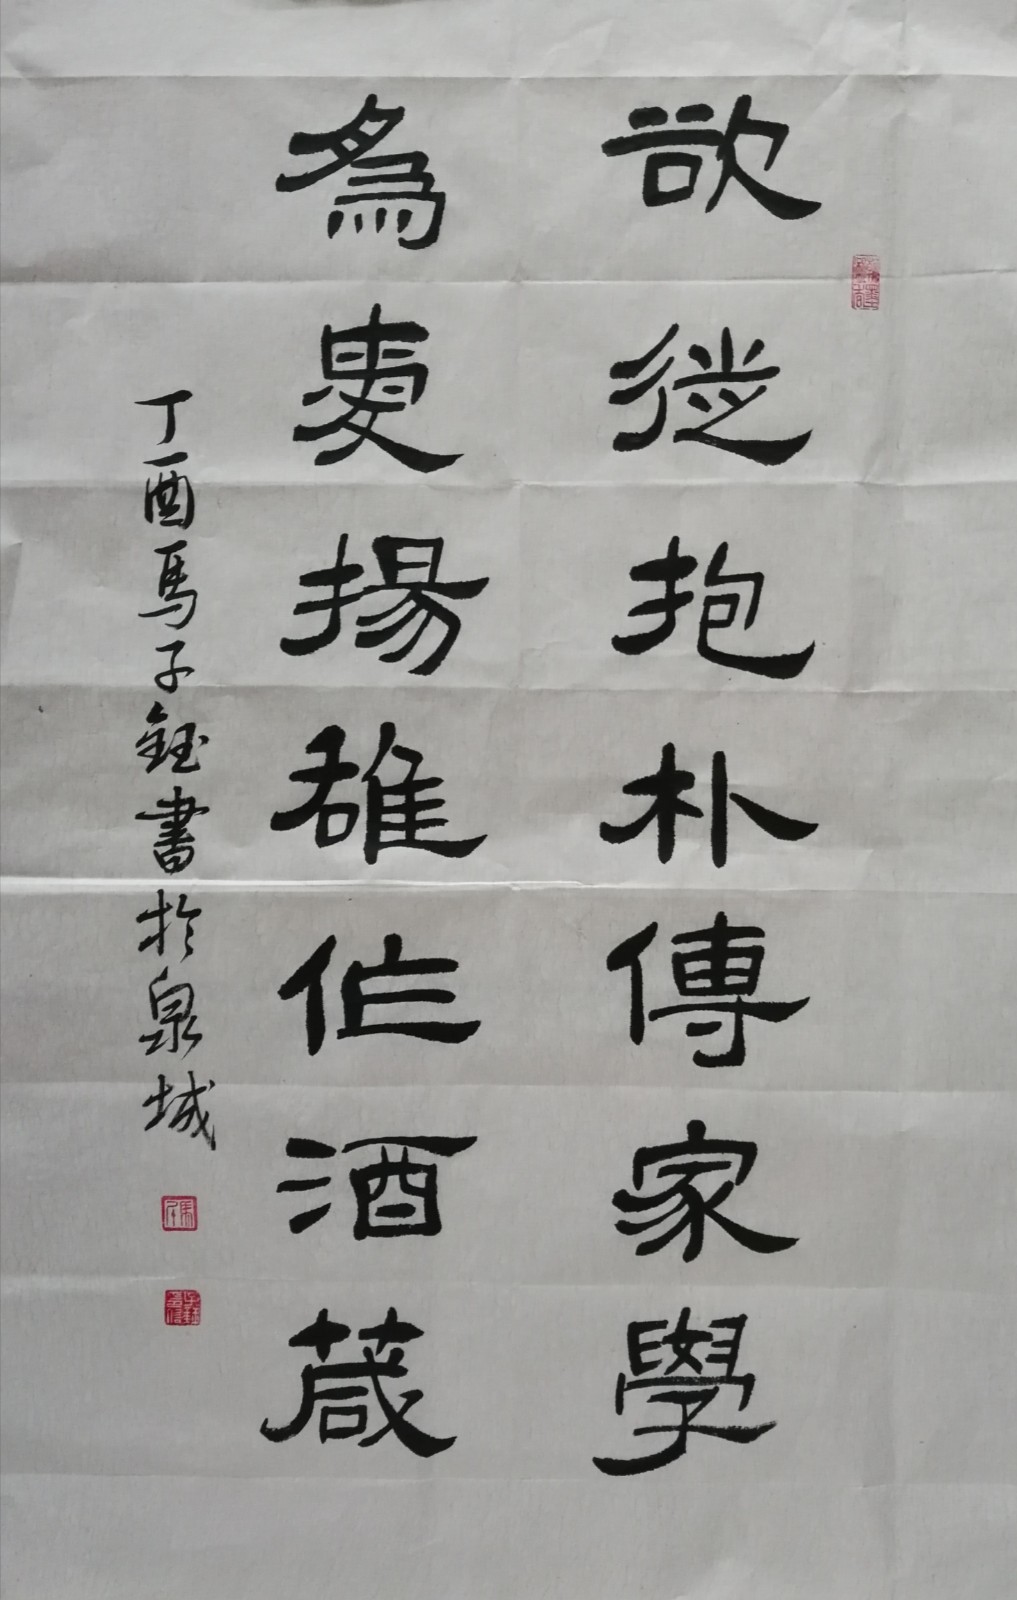 欲從抱朴傳家學
為愛揚雄作酒箴
丁酉馬子鈺書於泉城